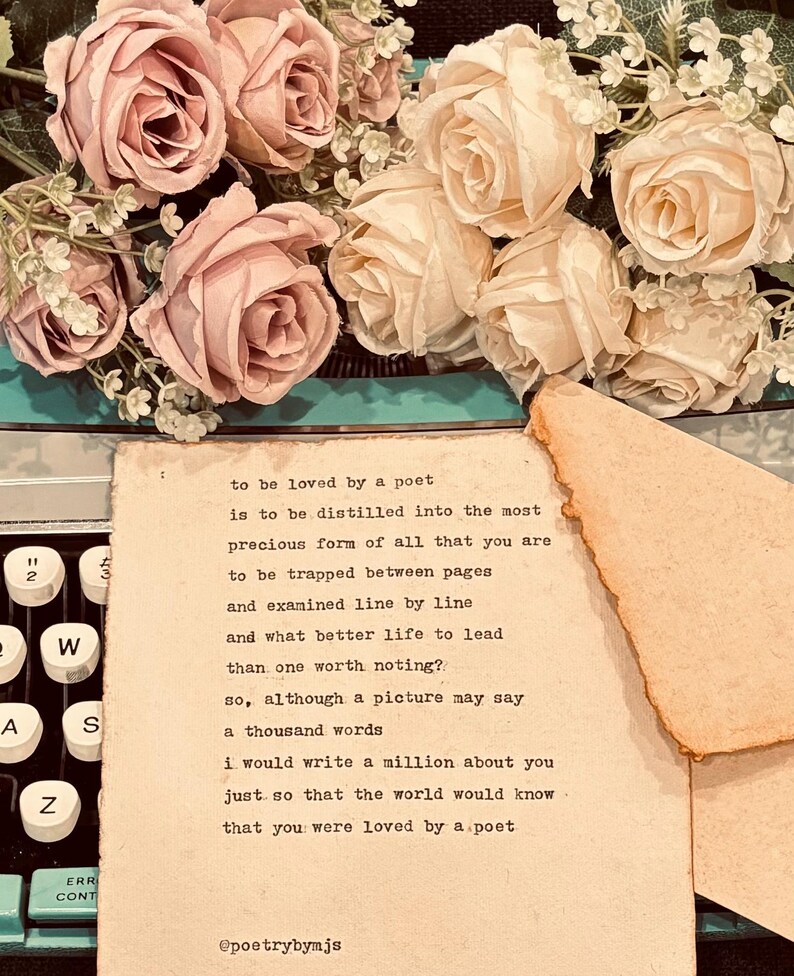 to be loved by a poet
is to be distilled into the most
precious form of all that you are
to be trapped between pages
and examined line by line
and what better life to lead
than one worth noting?
so, although a picture may say
a thousand words
i would write a million about you
just so that the world would know
that you were loved by a poet
@poetrybymjs
" #
2 3
Q W
A S
Z
ERR
CONT